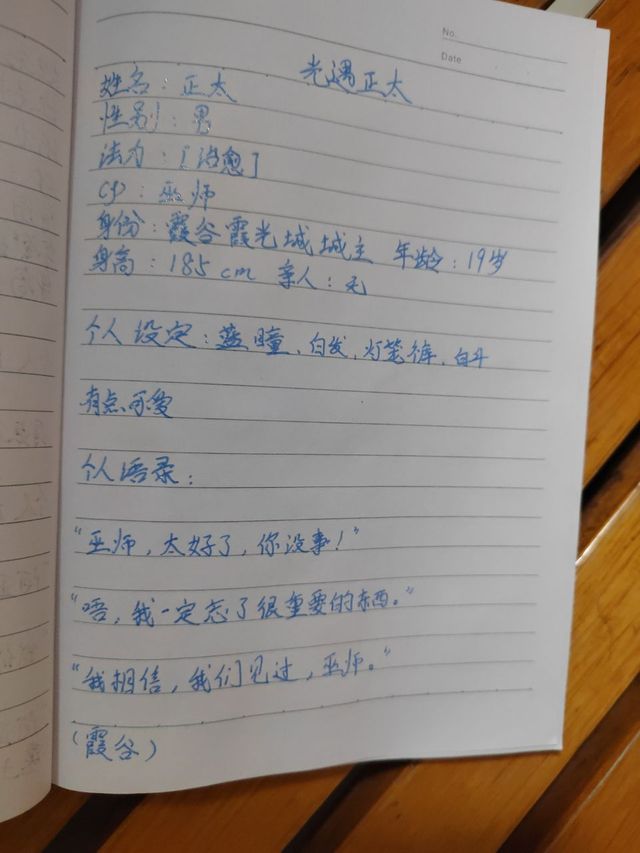 No.
Date
光遇正太
姓名：正太
性别：男
法力：[治愈]
cp：巫师
身份：霞谷霞光城城主 年龄：19岁
身高：185cm 亲人：无
个人设定：蓝瞳、白发、灯笼裤、白斗
有点可爱
个人语录：
“巫师，太好了，你没事！”
“唔，我一定忘了很重要的东西。”
“我相信，我们见过，巫师。”
（霞谷）